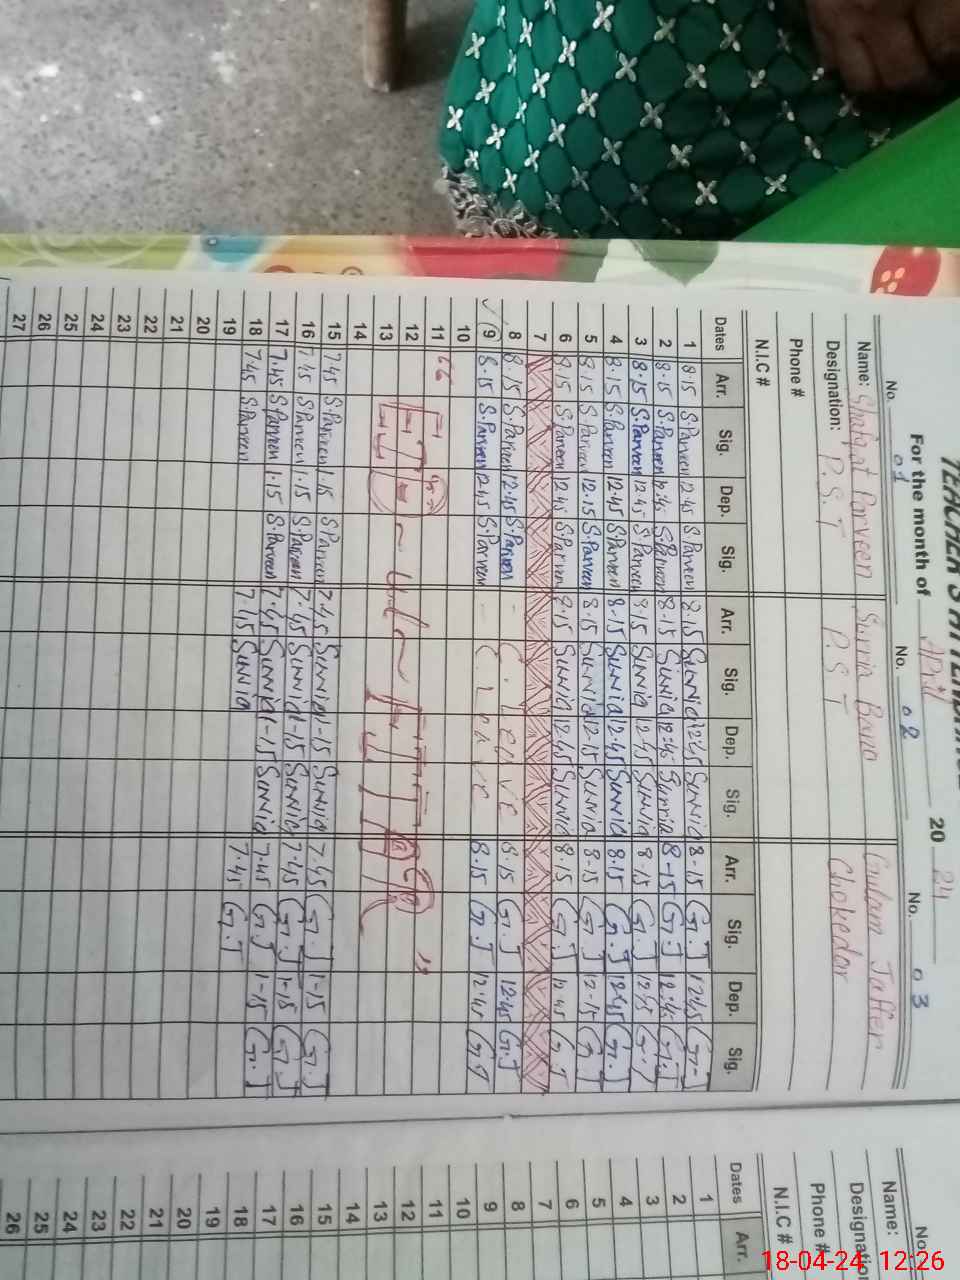 TEACHER'S ATTENDANCE
For the month of April 20 24
No. 01 No. 02 No. 03
Name: Shafqat Parveen Surria Bano Gulam Jaffer
Designation: P.S.T P.S.T Chokedar
Phone #
N.I.C #
Dates Arr. Sig. Dep. Sig. Arr. Sig. Dep. Sig. Arr. Sig. Dep. Sig.
1 8.15 S.Parveen 12.45 S.Parveen 8.15 Surria 12.45 Surria 8-15 G.J 12.45 G.J
2 8.15 S.Parveen 12.45 S.Parveen 8-15 Surria 12.45 Surria 8-15 G.J 12.45 G.J
3 8.15 S.Parveen 12.45 S.Parveen 8.15 Surria 12.45 Surria 8-15 G.J 12.45 G.J
4 8.15 S.Parveen 12.45 S.Parveen 8-15 Surria 12.45 Surria 8.15 G.J 12.45 G.J
5 8.15 S.Parveen 12.15 S.Parveen 8-15 Surria 12-15 Surria 8-15 G.J 12-15 G.J
6 8.15 S.Parveen 12.45 S.Parveen 8.15 Surria 12.45 Surria 8.15 G.J 12.45 G.J
7
8 8.15 S.Parveen 12.45 S.Parveen - C. Leave 8.15 G.J 12.45 G.J
9 8.15 S.Parveen 12.45 S.Parveen - C. Leave 8.15 G.J 12.45 G.J
10
11
12
13
14
15 7.45 S.Parveen 1.15 S.Parveen 7.45 Surria 1-15 Surria 7.45 G.J 1-15 G.J
16 7.45 S.Parveen 1.15 S.Parveen 7.45 Surria 1-15 Surria 7.45 G.J 1-15 G.J
17 7.45 S.Parveen 1.15 S.Parveen 7.45 Surria 1-15 Surria 7.45 G.J 1-15 G.J
18 7.45 S.Parveen 7.15 Surria 7.45 G.J
19
20
21
22
23
24
25
26
27
No.
Name:
Designation
Phone #
N.I.C #
Dates Arr.
1
2
3
4
5
6
7
8
9
10
11
12
13
14
15
16
17
18
19
20
21
22
23
24
25
26
18-04-24 12:26